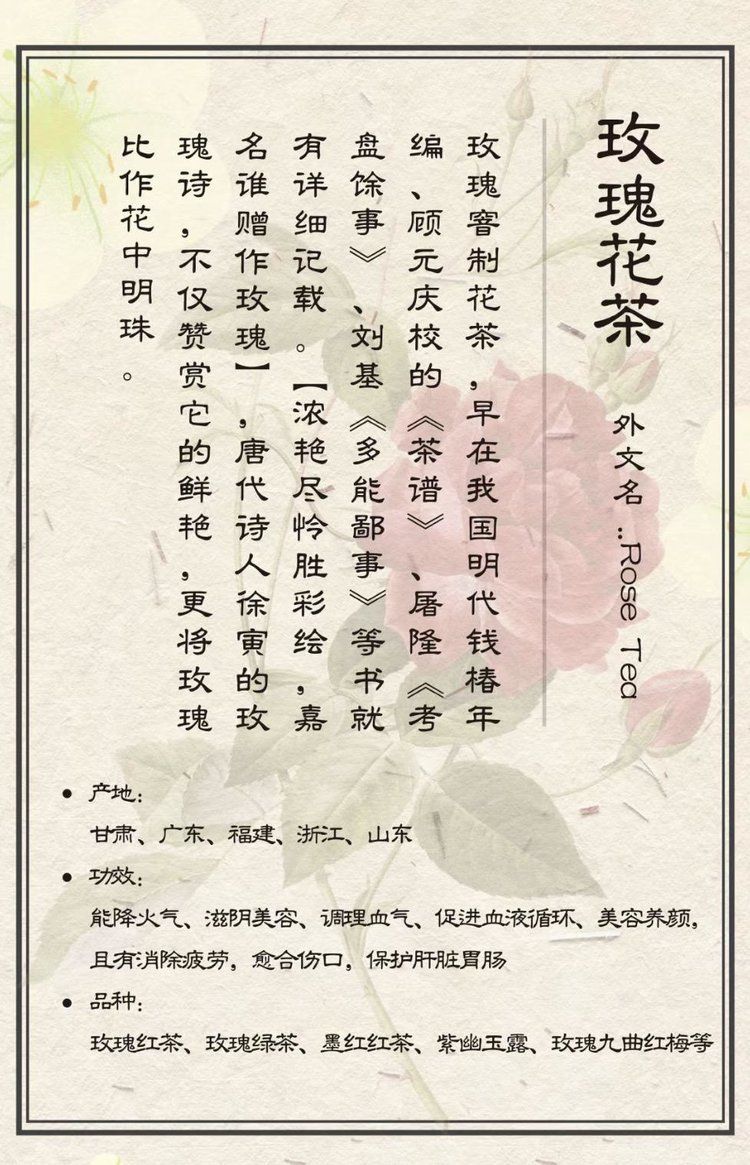 玫瑰花茶 外文名：Rose Tea
玫瑰窨制花茶，早在我国明代钱椿年
编、顾元庆校的《茶谱》、屠隆《考
盘馀事》、刘基《多能鄙事》等书就
有详细记载。【浓艳尽怜胜彩绘，嘉
名谁赠作玫瑰】，唐代诗人徐寅的玫
瑰诗，不仅赞赏它的鲜艳，更将玫瑰
比作花中明珠。
• 产地：
甘肃、广东、福建、浙江、山东
• 功效：
能降火气、滋阴美容、调理血气、促进血液循环、美容养颜，
且有消除疲劳，愈合伤口，保护肝脏胃肠
• 品种：
玫瑰红茶、玫瑰绿茶、墨红红茶、紫幽玉露、玫瑰九曲红梅等